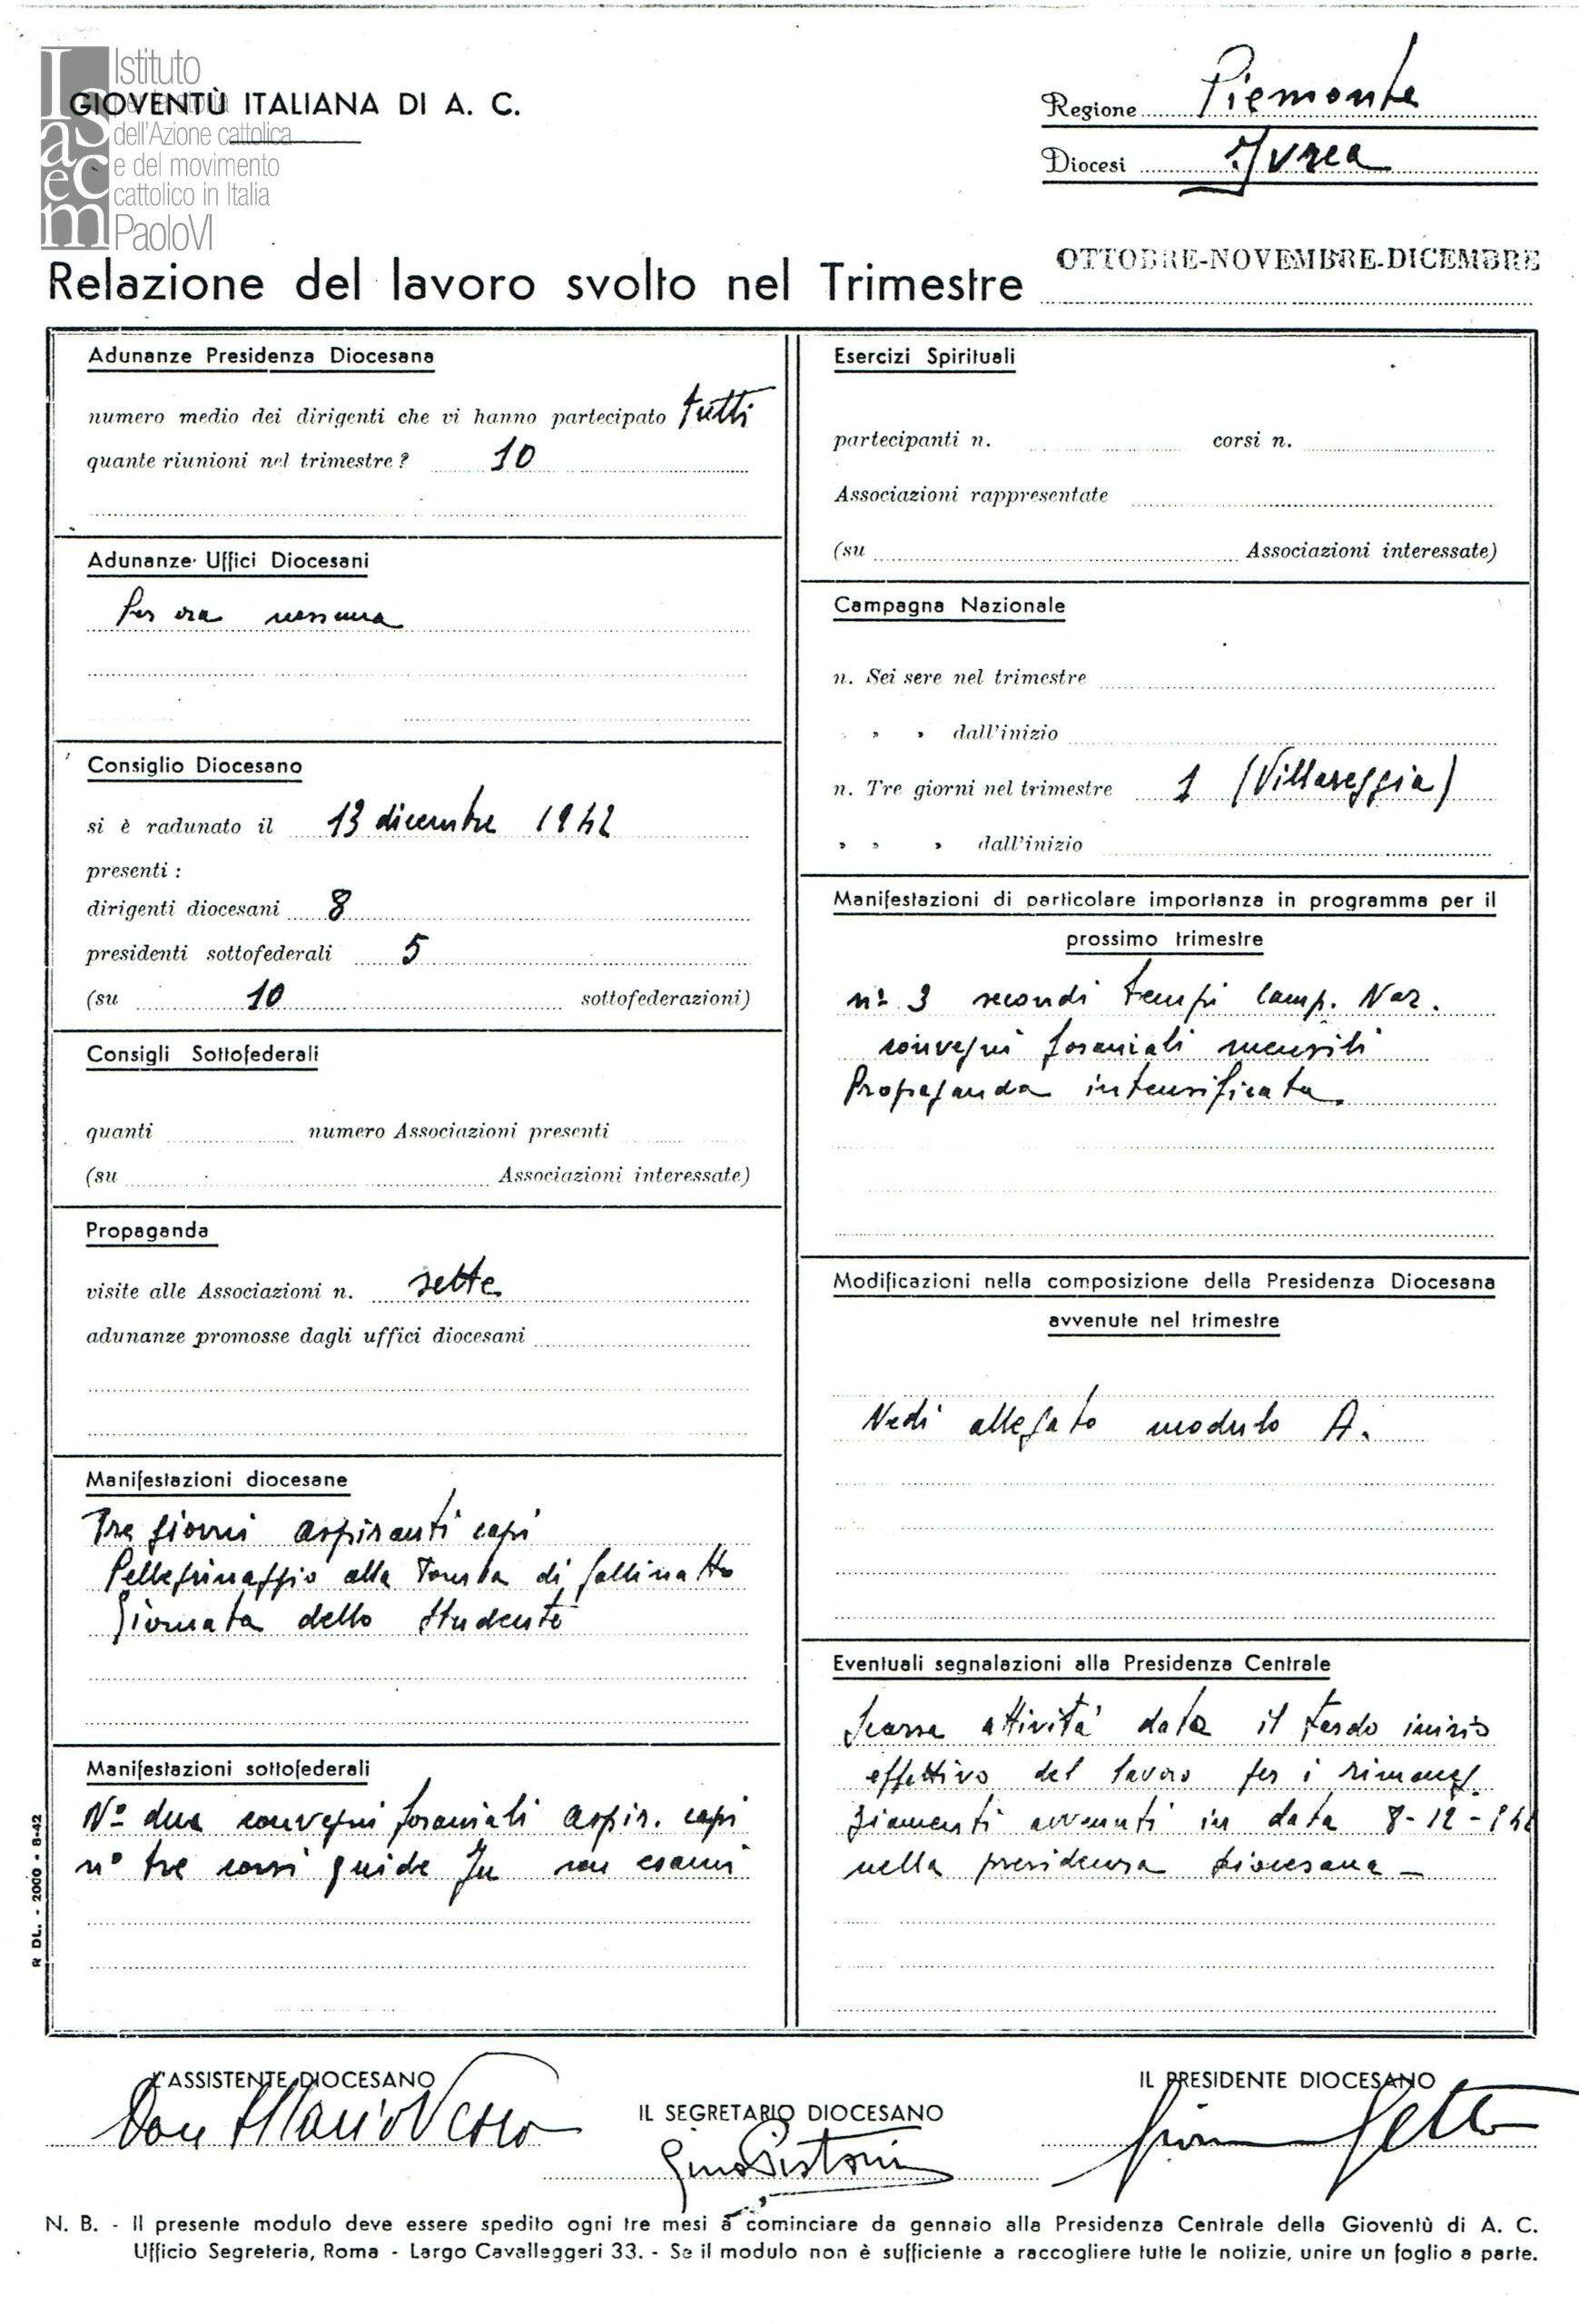 Istituto
per la storia
dell'Azione cattolica
e del movimento
cattolico in Italia
PaoloVI
Isacem
GIOVENTÙ ITALIANA DI A. C.
Regione Piemonte
Diocesi Ivrea
Relazione del lavoro svolto nel Trimestre OTTOBRE-NOVEMBRE-DICEMBRE
Adunanze Presidenza Diocesana
numero medio dei dirigenti che vi hanno partecipato tutti
quante riunioni nel trimestre? 10
Adunanze Uffici Diocesani
Per ora nessuna
Consiglio Diocesano
si è radunato il 13 dicembre 1942
presenti :
dirigenti diocesani 8
presidenti sottofederali 5
(su 10 sottofederazioni)
Consigli Sottofederali
quanti numero Associazioni presenti
(su Associazioni interessate)
Propaganda
visite alle Associazioni n. sette
adunanze promosse dagli uffici diocesani
Manifestazioni diocesane
Tre giorni aspiranti capi
Pellegrinaggio alla Tomba di Gallinatto
Giornata dello Studente
Manifestazioni sottofederali
N° due convegni foraniali aspir. capi
n° tre corsi guide Ju con esami
Esercizi Spirituali
partecipanti n. corsi n.
Associazioni rappresentate
(su Associazioni interessate)
Campagna Nazionale
n. Sei sere nel trimestre
» » » dall'inizio
n. Tre giorni nel trimestre 1 (Villareggia)
» » » dall'inizio
Manifestazioni di particolare importanza in programma per il
prossimo trimestre
n° 3 secondi tempi Camp. Naz.
convegni foraniali mensili
Propaganda intensificata
Modificazioni nella composizione della Presidenza Diocesana
avvenute nel trimestre
Vedi allegato modulo A.
Eventuali segnalazioni alla Presidenza Centrale
Scarsa attività data il tardo inizio
effettivo del lavoro per i rimaneg
giamenti avvenuti in data 8-12-942
nella presidenza diocesana -
R DL. - 2000 - 8-42
L'ASSISTENTE DIOCESANO
Don Mario Vesco
IL SEGRETARIO DIOCESANO
Gino Pistoni
IL PRESIDENTE DIOCESANO
N. B. - Il presente modulo deve essere spedito ogni tre mesi a cominciare da gennaio alla Presidenza Centrale della Gioventù di A. C.
Ufficio Segreteria, Roma - Largo Cavalleggeri 33. - Se il modulo non è sufficiente a raccogliere tutte le notizie, unire un foglio a parte.